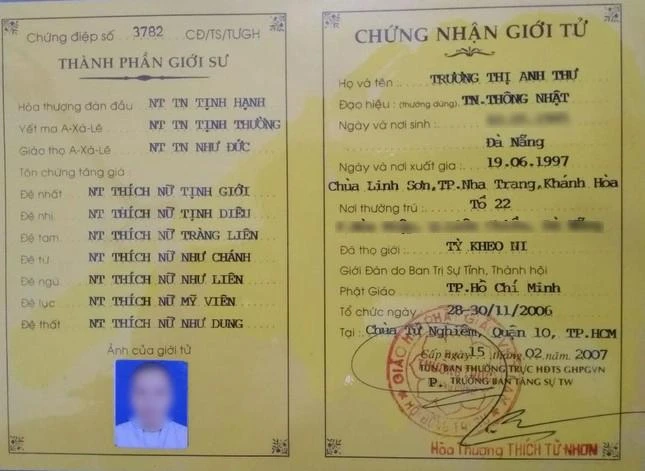 Chứng điệp số 3782 CĐ/TS/TƯGH
THÀNH PHẦN GIỚI SƯ
Hòa thượng đàn đầu NT TN TỊNH HẠNH
Yết ma A-Xà-Lê NT TN TỊNH THƯỜNG
Giáo thọ A-Xà-Lê NT TN NHƯ ĐỨC
Tôn chứng tăng già :
Đệ nhất NT THÍCH NỮ TỊNH GIỚI
Đệ nhị NT THÍCH NỮ TỊNH DIỆU
Đệ tam NT THÍCH NỮ TRÀNG LIÊN
Đệ tứ NT THÍCH NỮ NHƯ CHÁNH
Đệ ngũ NT THÍCH NỮ NHƯ LIÊN
Đệ lục NT THÍCH NỮ MỸ VIÊN
Đệ thất NT THÍCH NỮ NHƯ DUNG
Ảnh của giới tử
CHỨNG NHẬN GIỚI TỬ
Họ và tên : TRƯƠNG THỊ ANH THƯ
Đạo hiệu : (thường dùng) TN.THÔNG NHẬT
Ngày và nơi sinh :
Đà Nẵng
Ngày và nơi xuất gia : 19.06.1997
Chùa Linh Sơn,TP.Nha Trang,Khánh Hòa
Nơi thường trú : Tổ 22
Đã thọ giới : TỲ KHEO NI
Giới Đàn do Ban Trị Sự Tỉnh, Thành hội
Phật Giáo TP.Hồ Chí Minh
Tổ chức ngày 28-30/11/2006
Tại : Chùa Từ Nghiêm, Quận 10, TP.HCM
Cấp ngày 15 tháng 02 năm 2007
TUN.BAN THƯỜNG TRỰC HĐTS GHPGVN
P. TRƯỞNG BAN TĂNG SỰ TW
Hòa Thượng THÍCH TỪ NHƠN